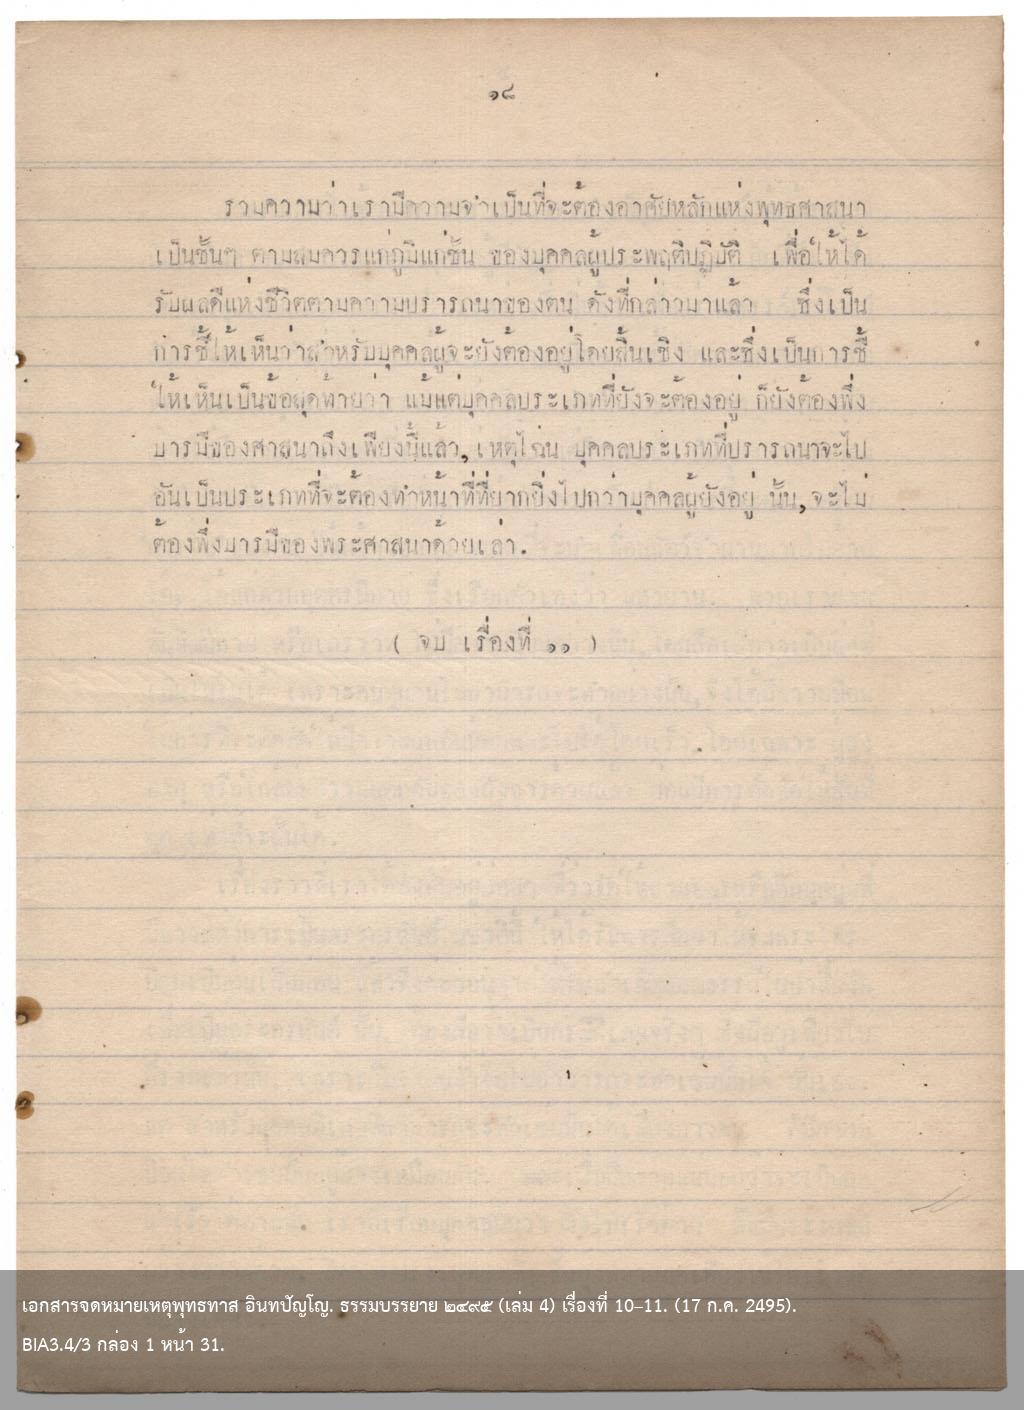 ๑๘
รวมความว่าเรามีความจำเป็นที่จะต้องอาศัยหลักแห่งพุทธศาสนา
เป็นชั้นๆ ตามสมควรแก่ภูมิแก่ชั้น ของบุคคลผู้ประพฤติปฏิบัติ เพื่อให้ได้
รับผลดีแห่งชีวิตตามความปรารถนาของตน ดังที่กล่าวมาแล้ว ซึ่งเป็น
การชี้ให้เห็นว่าสำหรับบุคคลผู้จะยังต้องอยู่โดยสิ้นเชิง และซึ่งเป็นการชี้
ให้เห็นเป็นข้อสุดท้ายว่า แม้แต่บุคคลประเภทที่ยังจะต้องอยู่ ก็ยังต้องพึ่ง
บารมีของศาสนาถึงเพียงนี้แล้ว, เหตุไฉน บุคคลประเภทที่ปรารถนาจะไป
อันเป็นประเภทที่จะต้องทำหน้าที่ที่ยากยิ่งไปกว่าบุคคลผู้ยังอยู่ นั้น, จะไม่
ต้องพึ่งบารมีของพระศาสนาด้วยเล่า.
( จบ เรื่องที่ ๑๑ )
เอกสารจดหมายเหตุพุทธทาส อินทปัญโญ. ธรรมบรรยาย ๒๔๙๕ (เล่ม 4) เรื่องที่ 10–11. (17 ก.ค. 2495).
BIA3.4/3 กล่อง 1 หน้า 31.